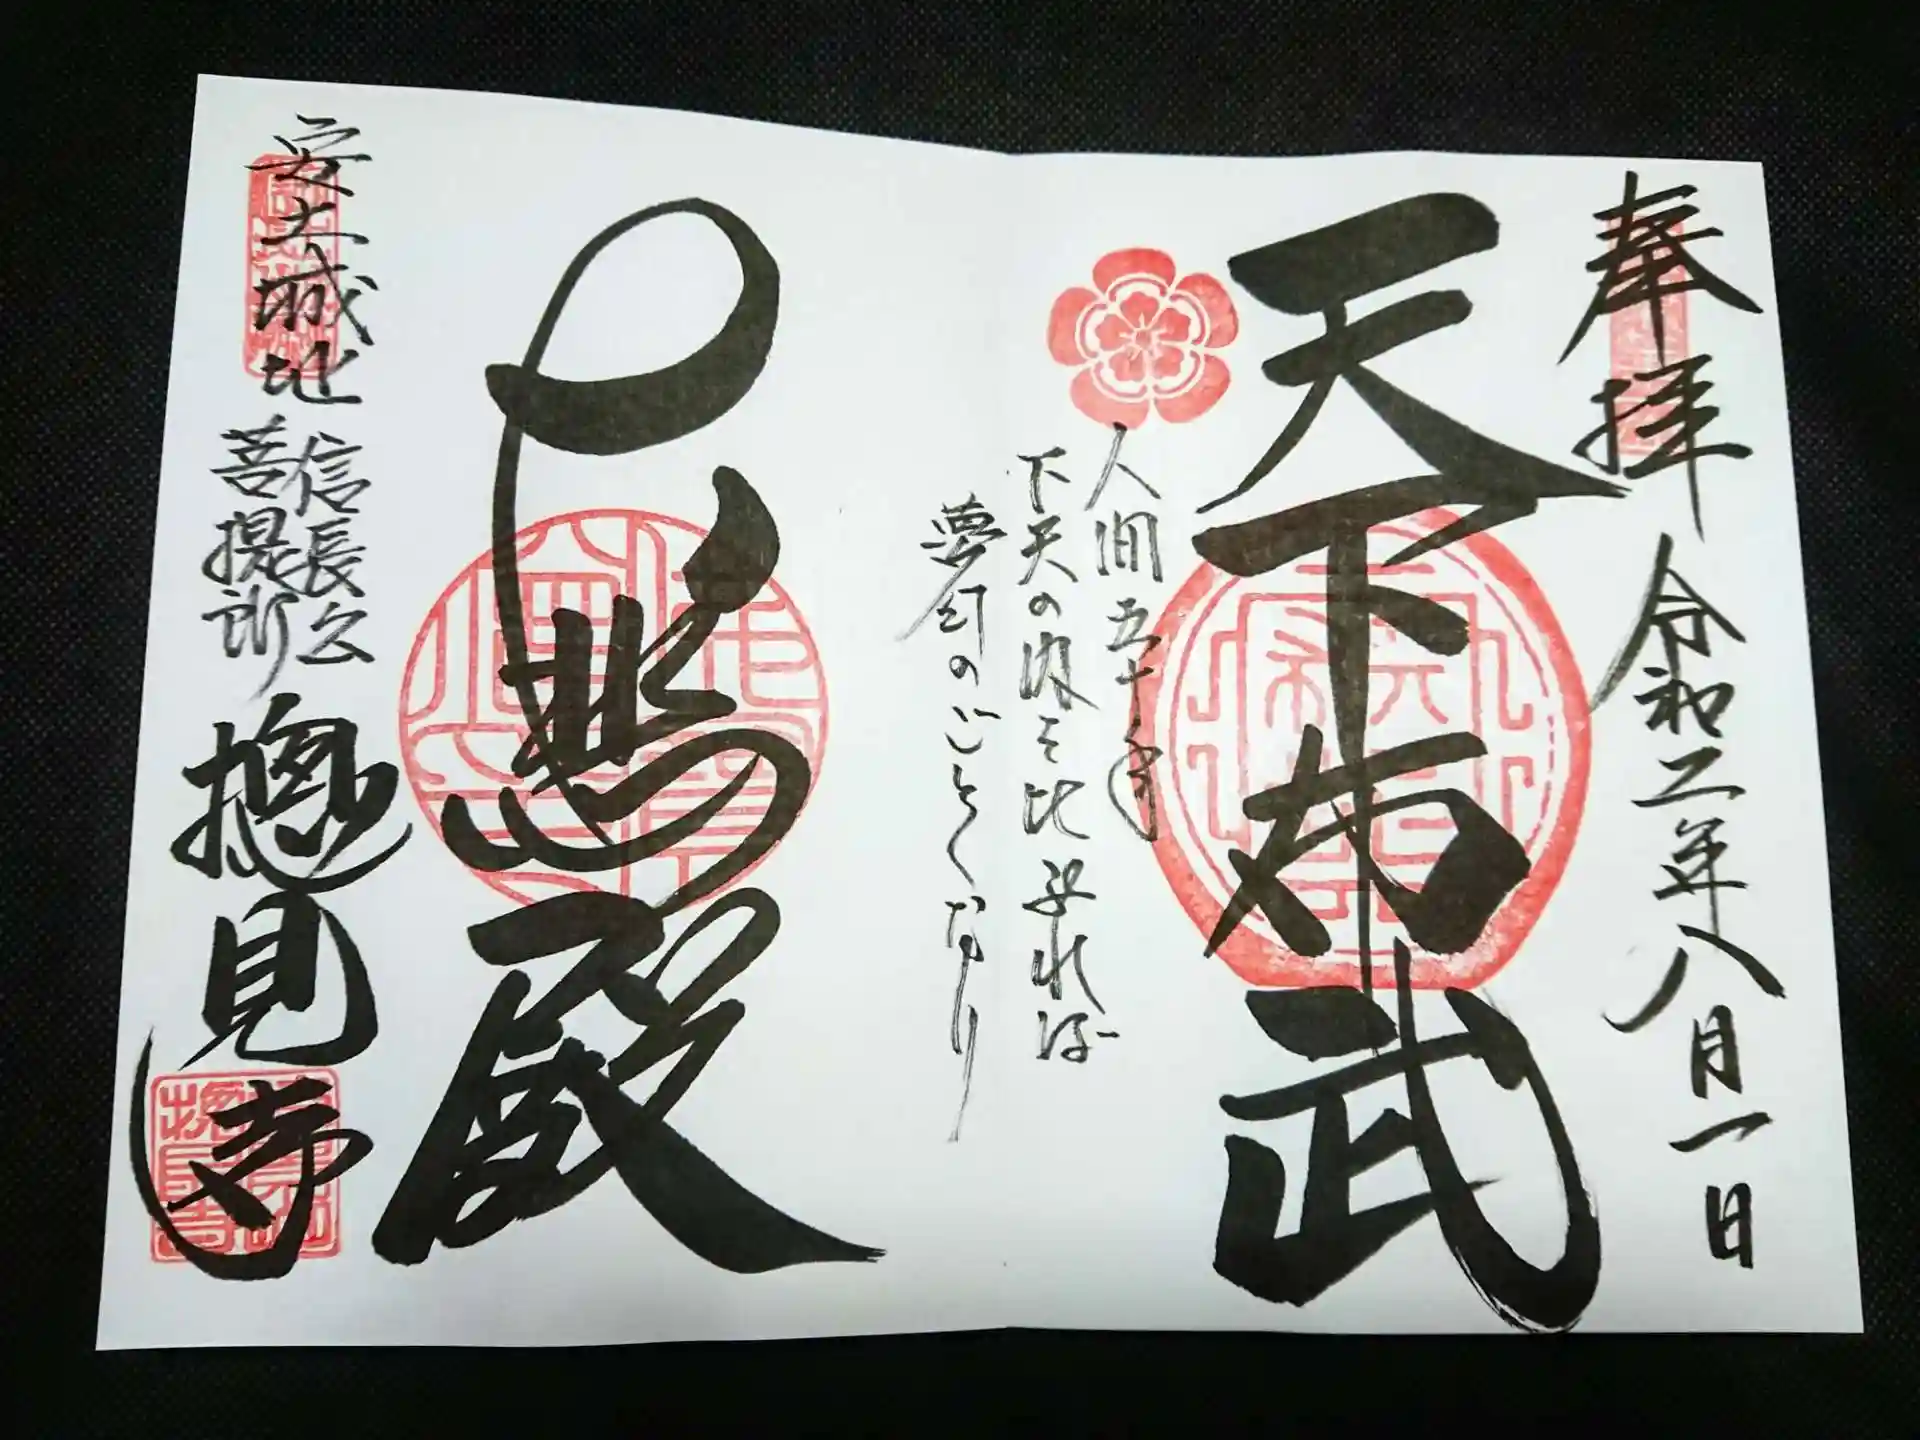 奉拝 令和二年八月一日
天下布武
人間五十年
下天の内を比ぶれば
夢幻のごとくなり
心鑑殿
安土城址
信長公
菩提所
摠見寺